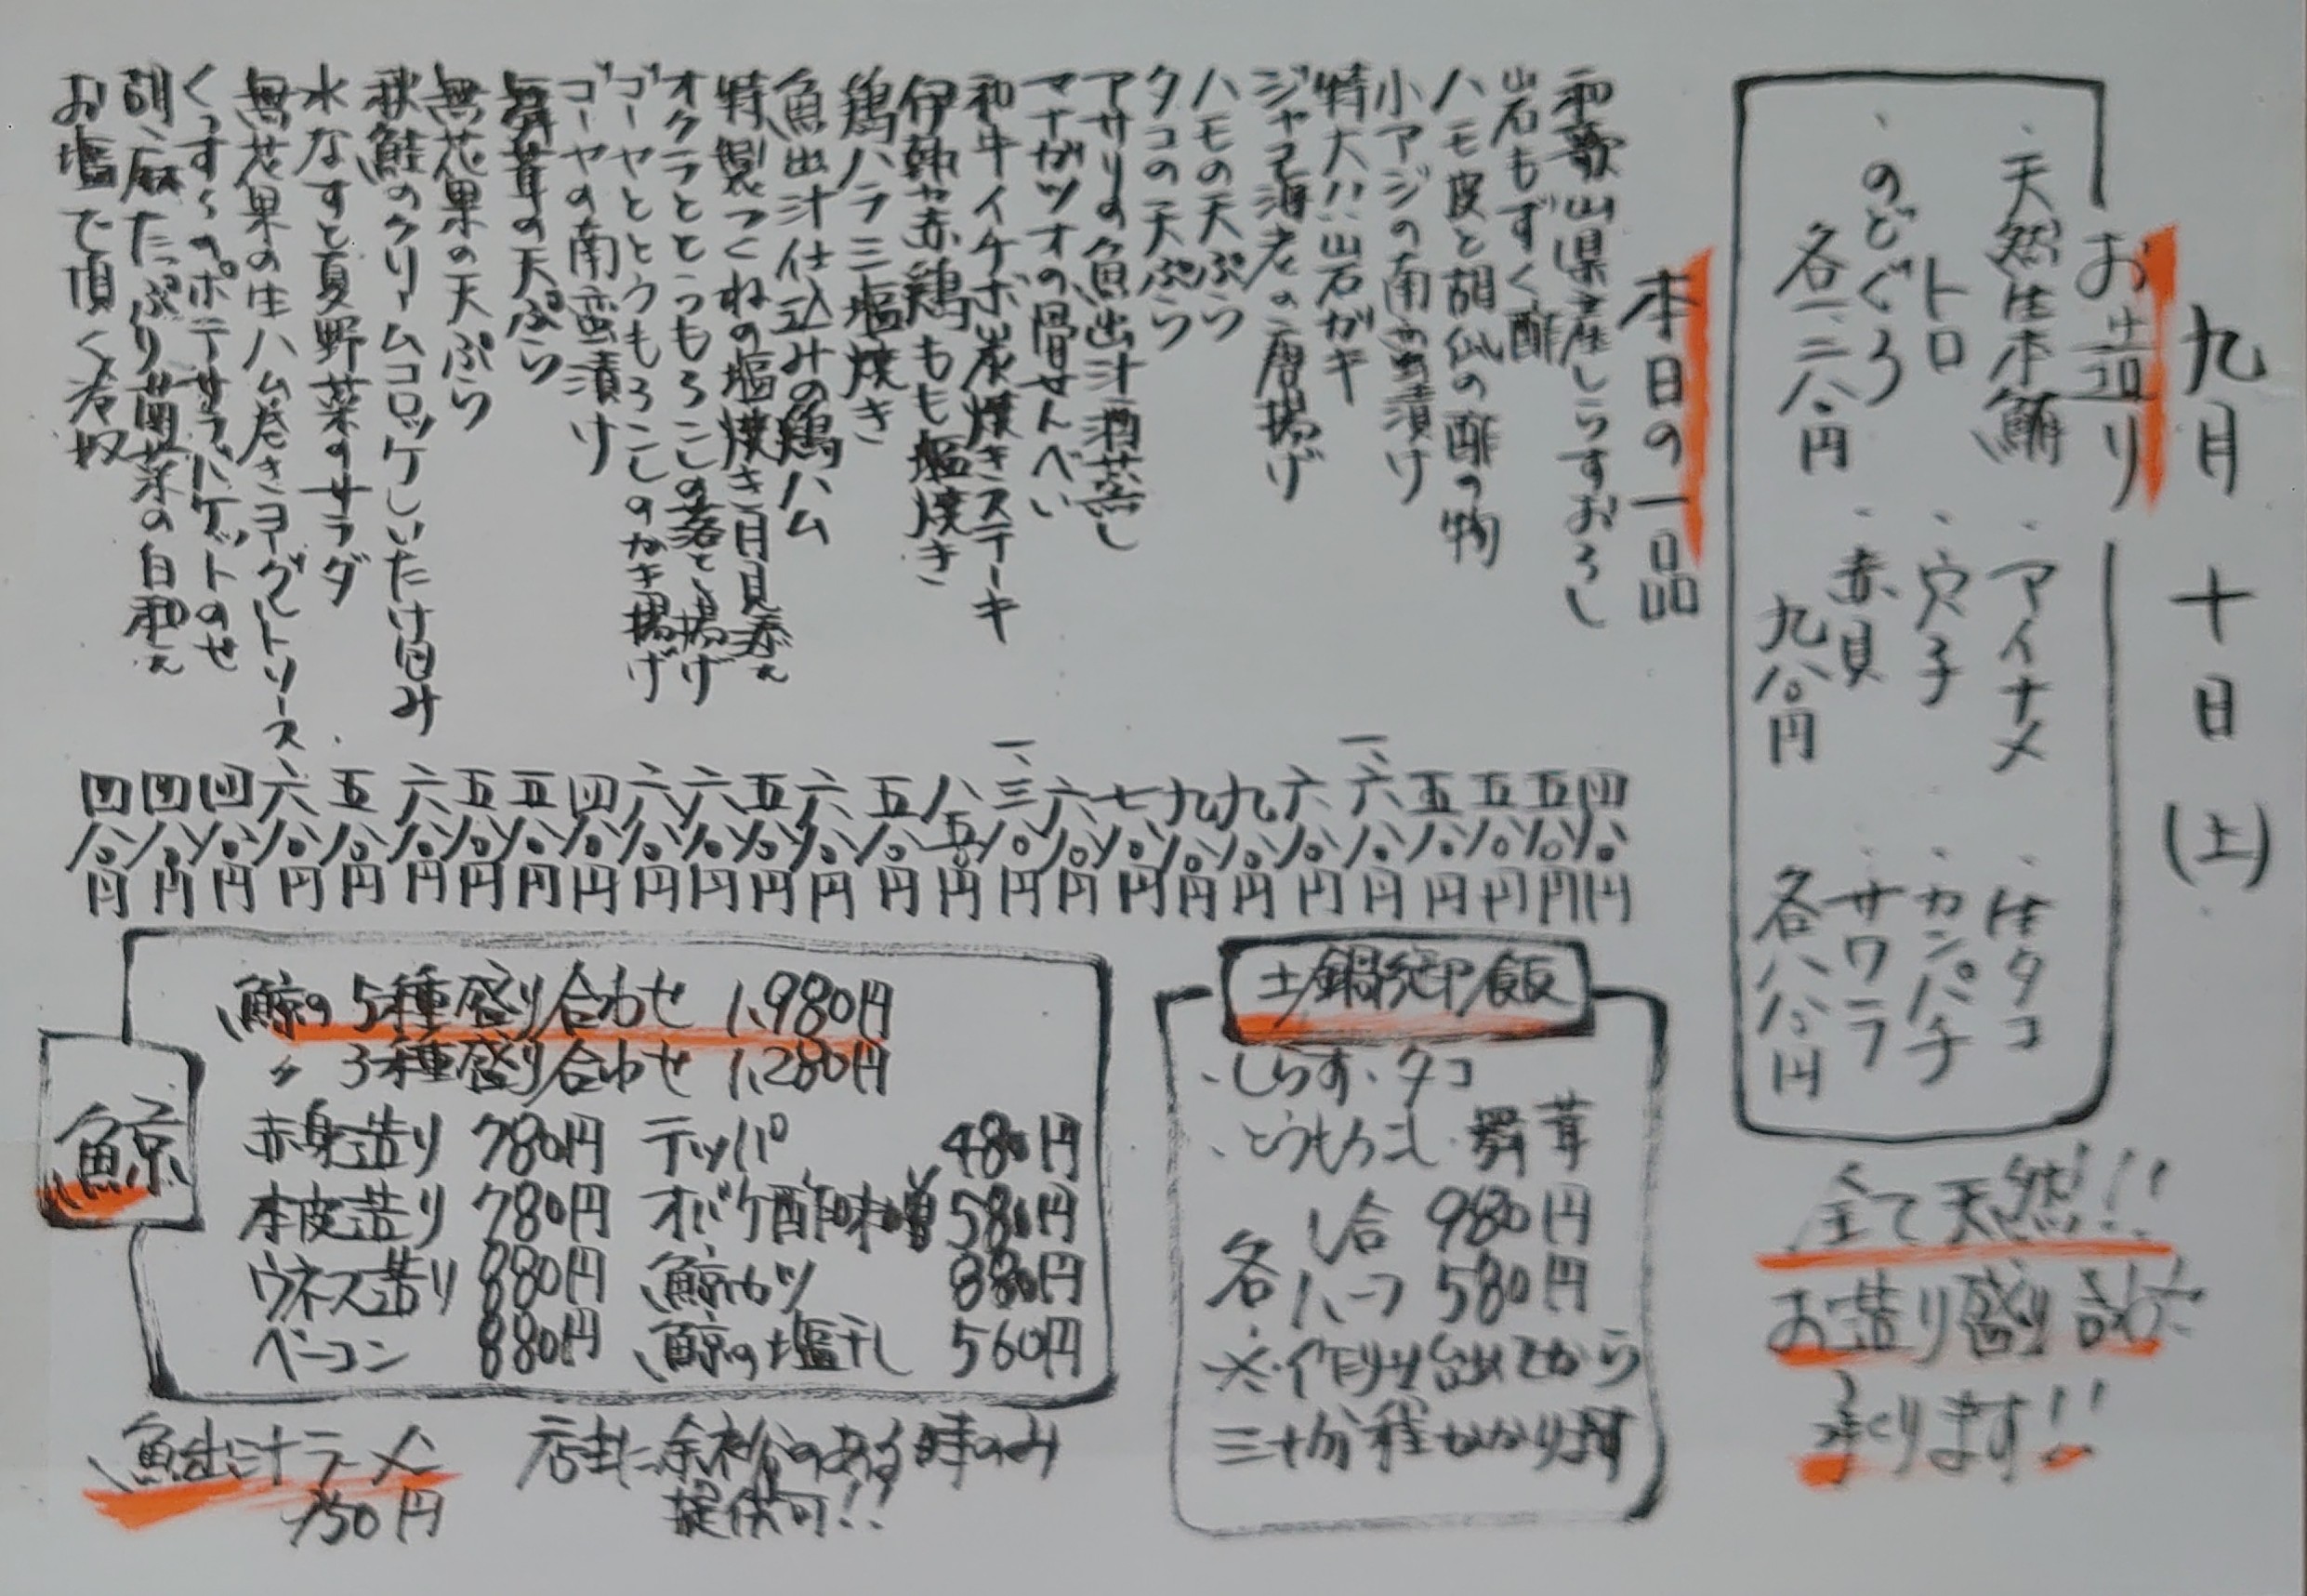 九月十日(土)
お造り
・天然生本鮪
トロ
・のどぐろ
各一、二八〇円
・アイナメ
・穴子
・赤貝
九八〇円
・生タコ
・カンパチ
・サワラ
各八八〇円
全て天然!!
お造り盛り合わせ
承ります!!
本日の一品
和歌山県産しらすおろし 四八〇円
岩もずく酢 五八〇円
ハモ皮と胡瓜の酢の物 五八〇円
小アジの南蛮漬け 五八〇円
特大!!岩ガキ 一、六八〇円
ジャコ海老の唐揚げ 六八〇円
ハモの天ぷら 九八〇円
タコの天ぷら 九八〇円
アサリの魚出汁酒蒸し 七八〇円
マナガツオの骨せんべい 六八〇円
和牛イチボ炭焼きステーキ 一、三八〇円
伊勢赤鶏もも塩焼き 八五〇円
鶏ハラミ塩焼き 五八〇円
魚出汁仕込みの鶏ハム 六八〇円
特製つくねの塩焼き月見添え 五八〇円
オクラととうもろこしの落とし揚げ 六八〇円
ゴーヤととうもろこしのかき揚げ 六八〇円
ゴーヤの南蛮漬け 四八〇円
舞茸の天ぷら 五八〇円
無花果の天ぷら 五八〇円
秋鮭のクリームコロッケしいたけ包み 六八〇円
水なすと夏野菜のサラダ 五八〇円
無花果の生ハム巻きヨーグルトソース 六八〇円
くっすんのポテサラバゲットのせ 四八〇円
胡麻たっぷり菌菜の白和え 四八〇円
お塩で頂く冷奴 四八〇円
土鍋御飯
・しらす・タコ
・とうもろこし・舞茸
各
1合 980円
ハーフ 580円
※作り出してから
三十分程かかります
鯨
鯨の5種盛り合わせ 1,980円
〃 3種盛り合わせ 1,280円
赤身造り 780円 テッパ 480円
本皮造り 780円 オバケ酢味噌 580円
ウネス造り 880円 鯨カツ 880円
ベーコン 880円 鯨の塩干し 560円
魚出汁ラーメン
750円
店主に余裕のある時のみ
提供可!!